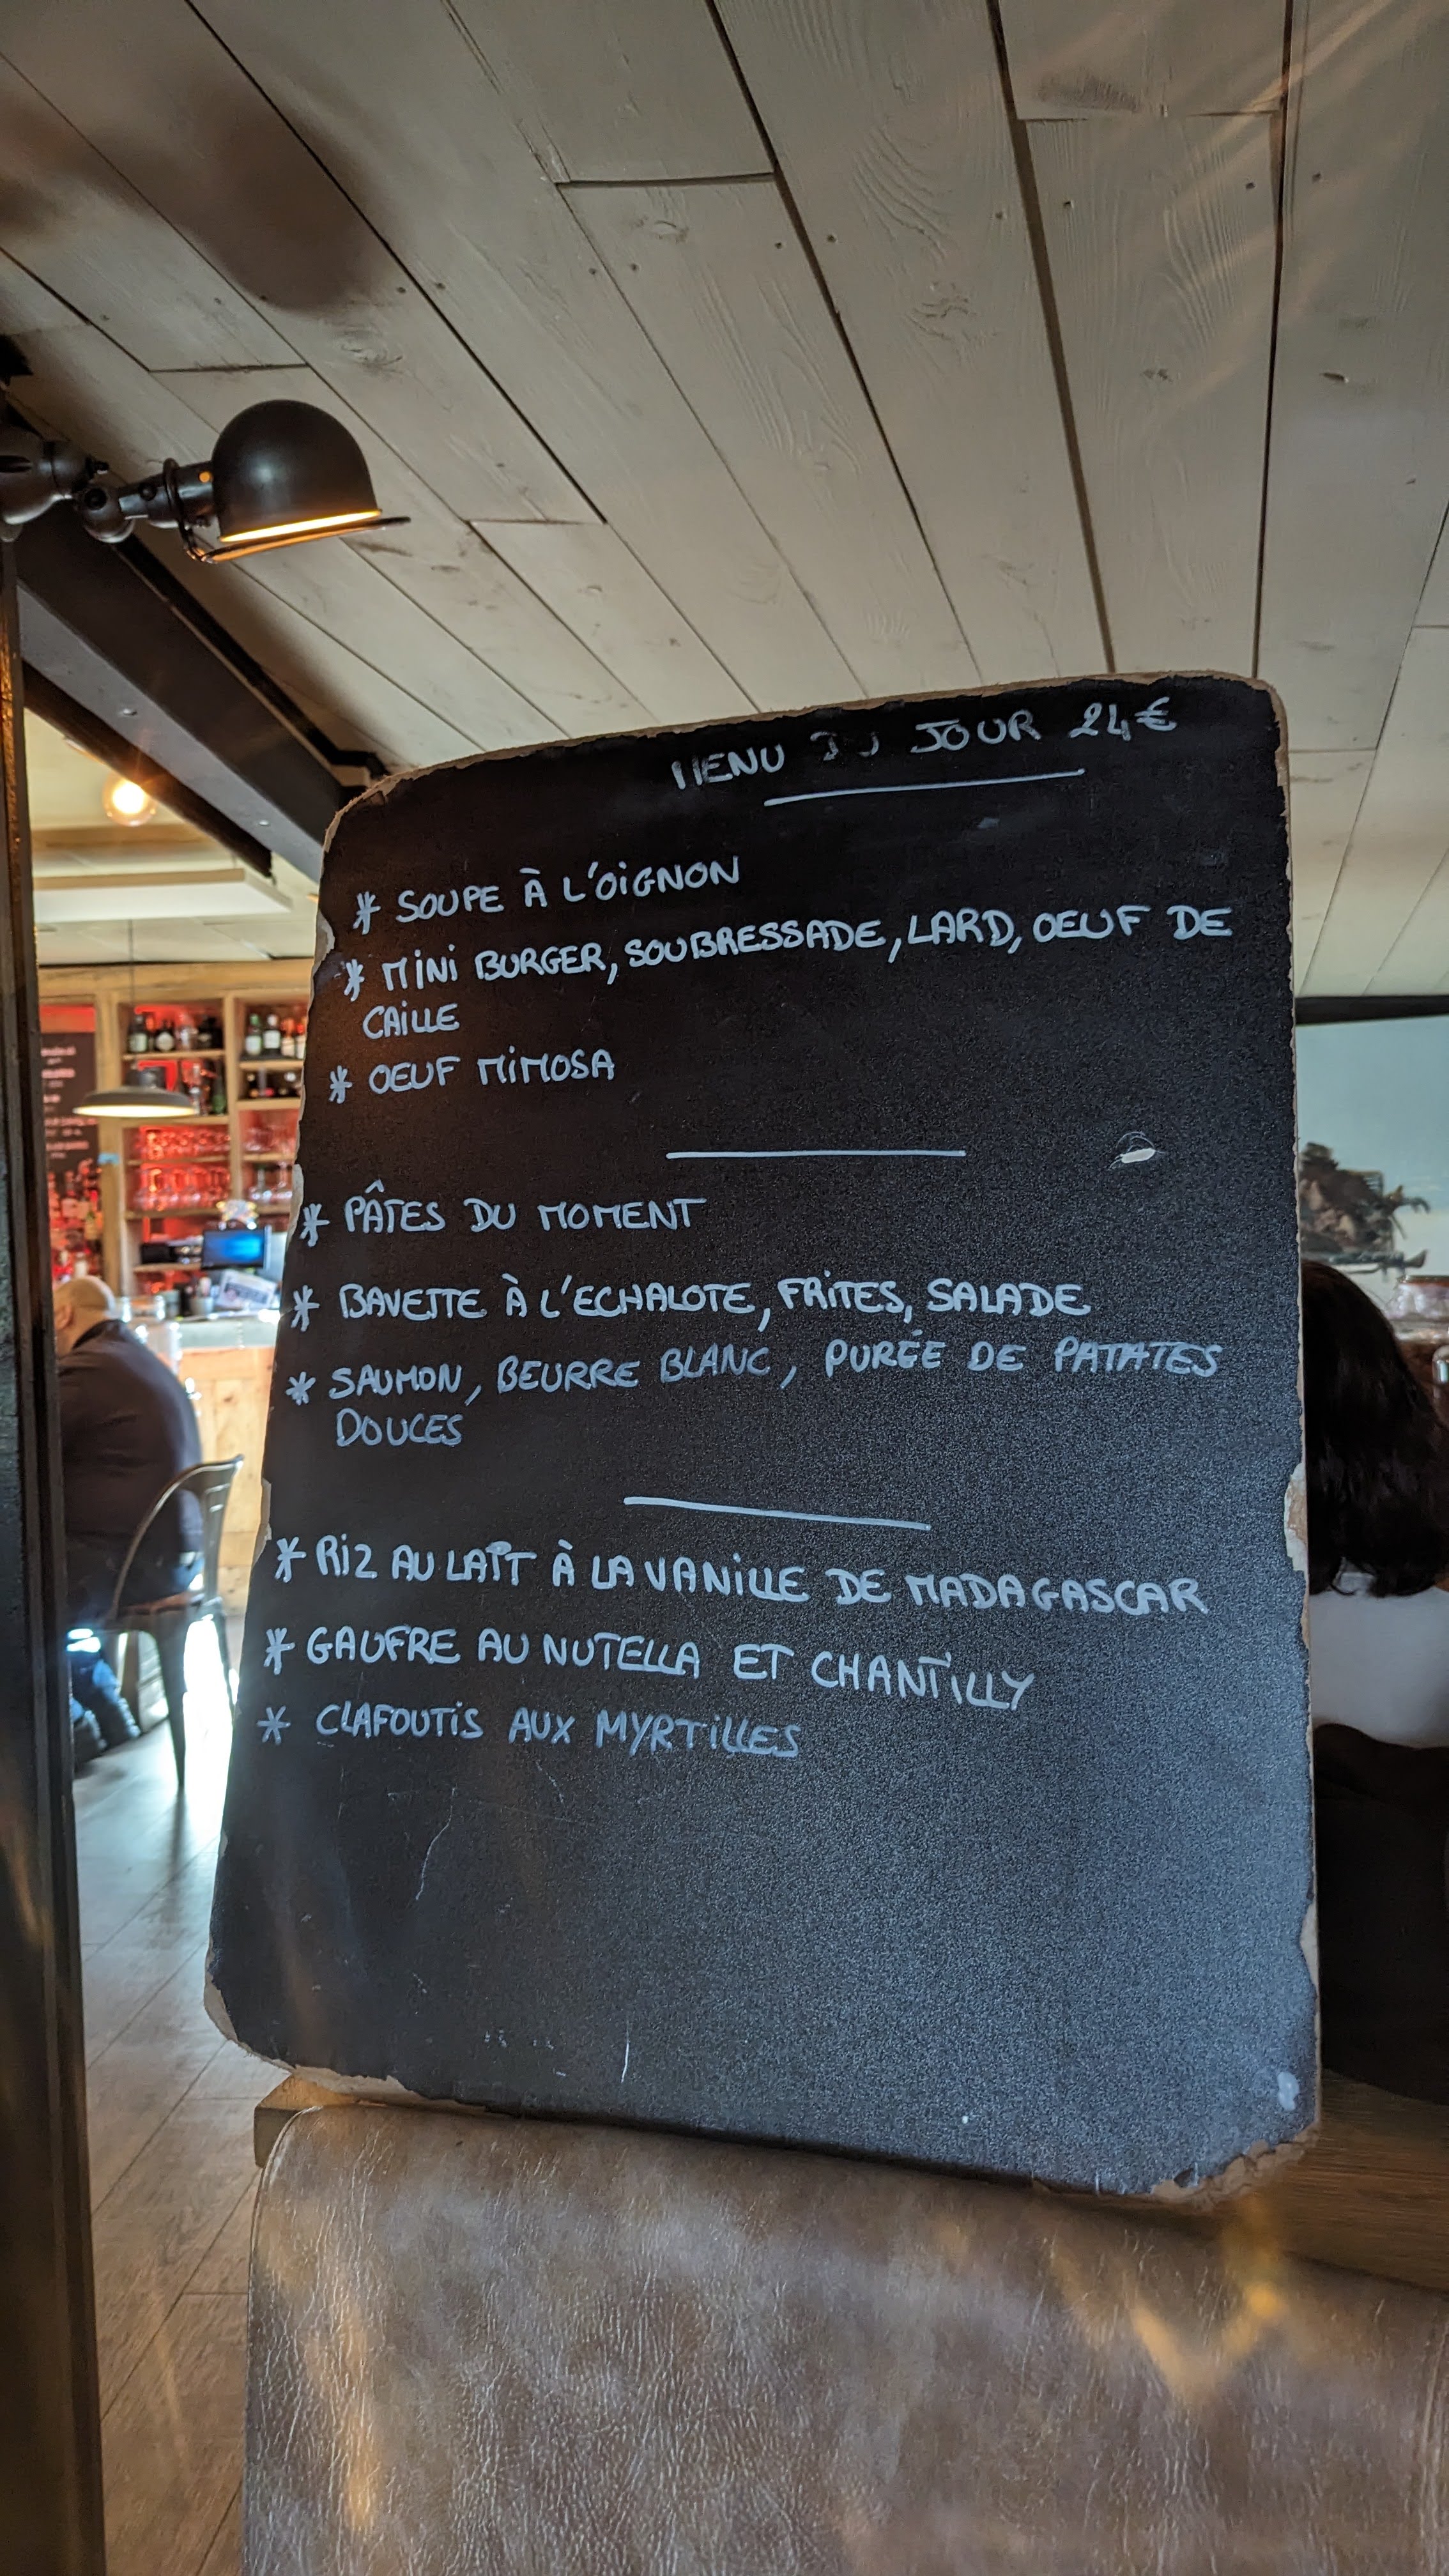 MENU DU JOUR 24€
* SOUPE À L'OIGNON
* MINI BURGER, SOUBRESSADE, LARD, OEUF DE
CAILLE
* OEUF MIMOSA
* PÂTES DU MOMENT
* BAVETTE À L'ECHALOTE, FRITES, SALADE
* SAUMON, BEURRE BLANC, PURÉE DE PATATES
DOUCES
* RIZ AU LAIT À LA VANILLE DE MADAGASCAR
* GAUFRE AU NUTELLA ET CHANTILLY
* CLAFOUTIS AUX MYRTILLES